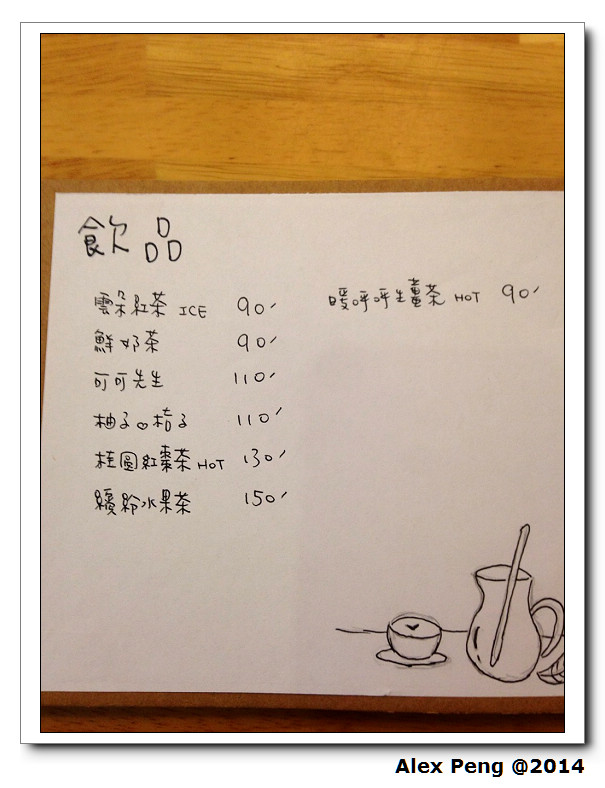 飲品
雲朵紅茶 ICE 90
鮮奶茶 90
可可先生 110
柚子♡桔子 110
桂圓紅棗茶 HOT 130
繽紛水果茶 150
暖呼呼生薑茶 HOT 90
Alex Peng @2014